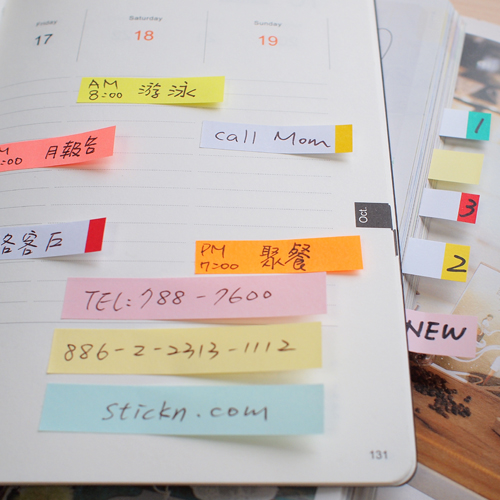 Friday
Saturday
Sunday
17
18
19
AM
8:00 游泳
call Mom
M
:00 月報告
絡客戶
PM
7:00 聚餐
Oct.
TEL: 788-7600
886-2-2313-1112
stickn.com
131
1
3
2
NEW